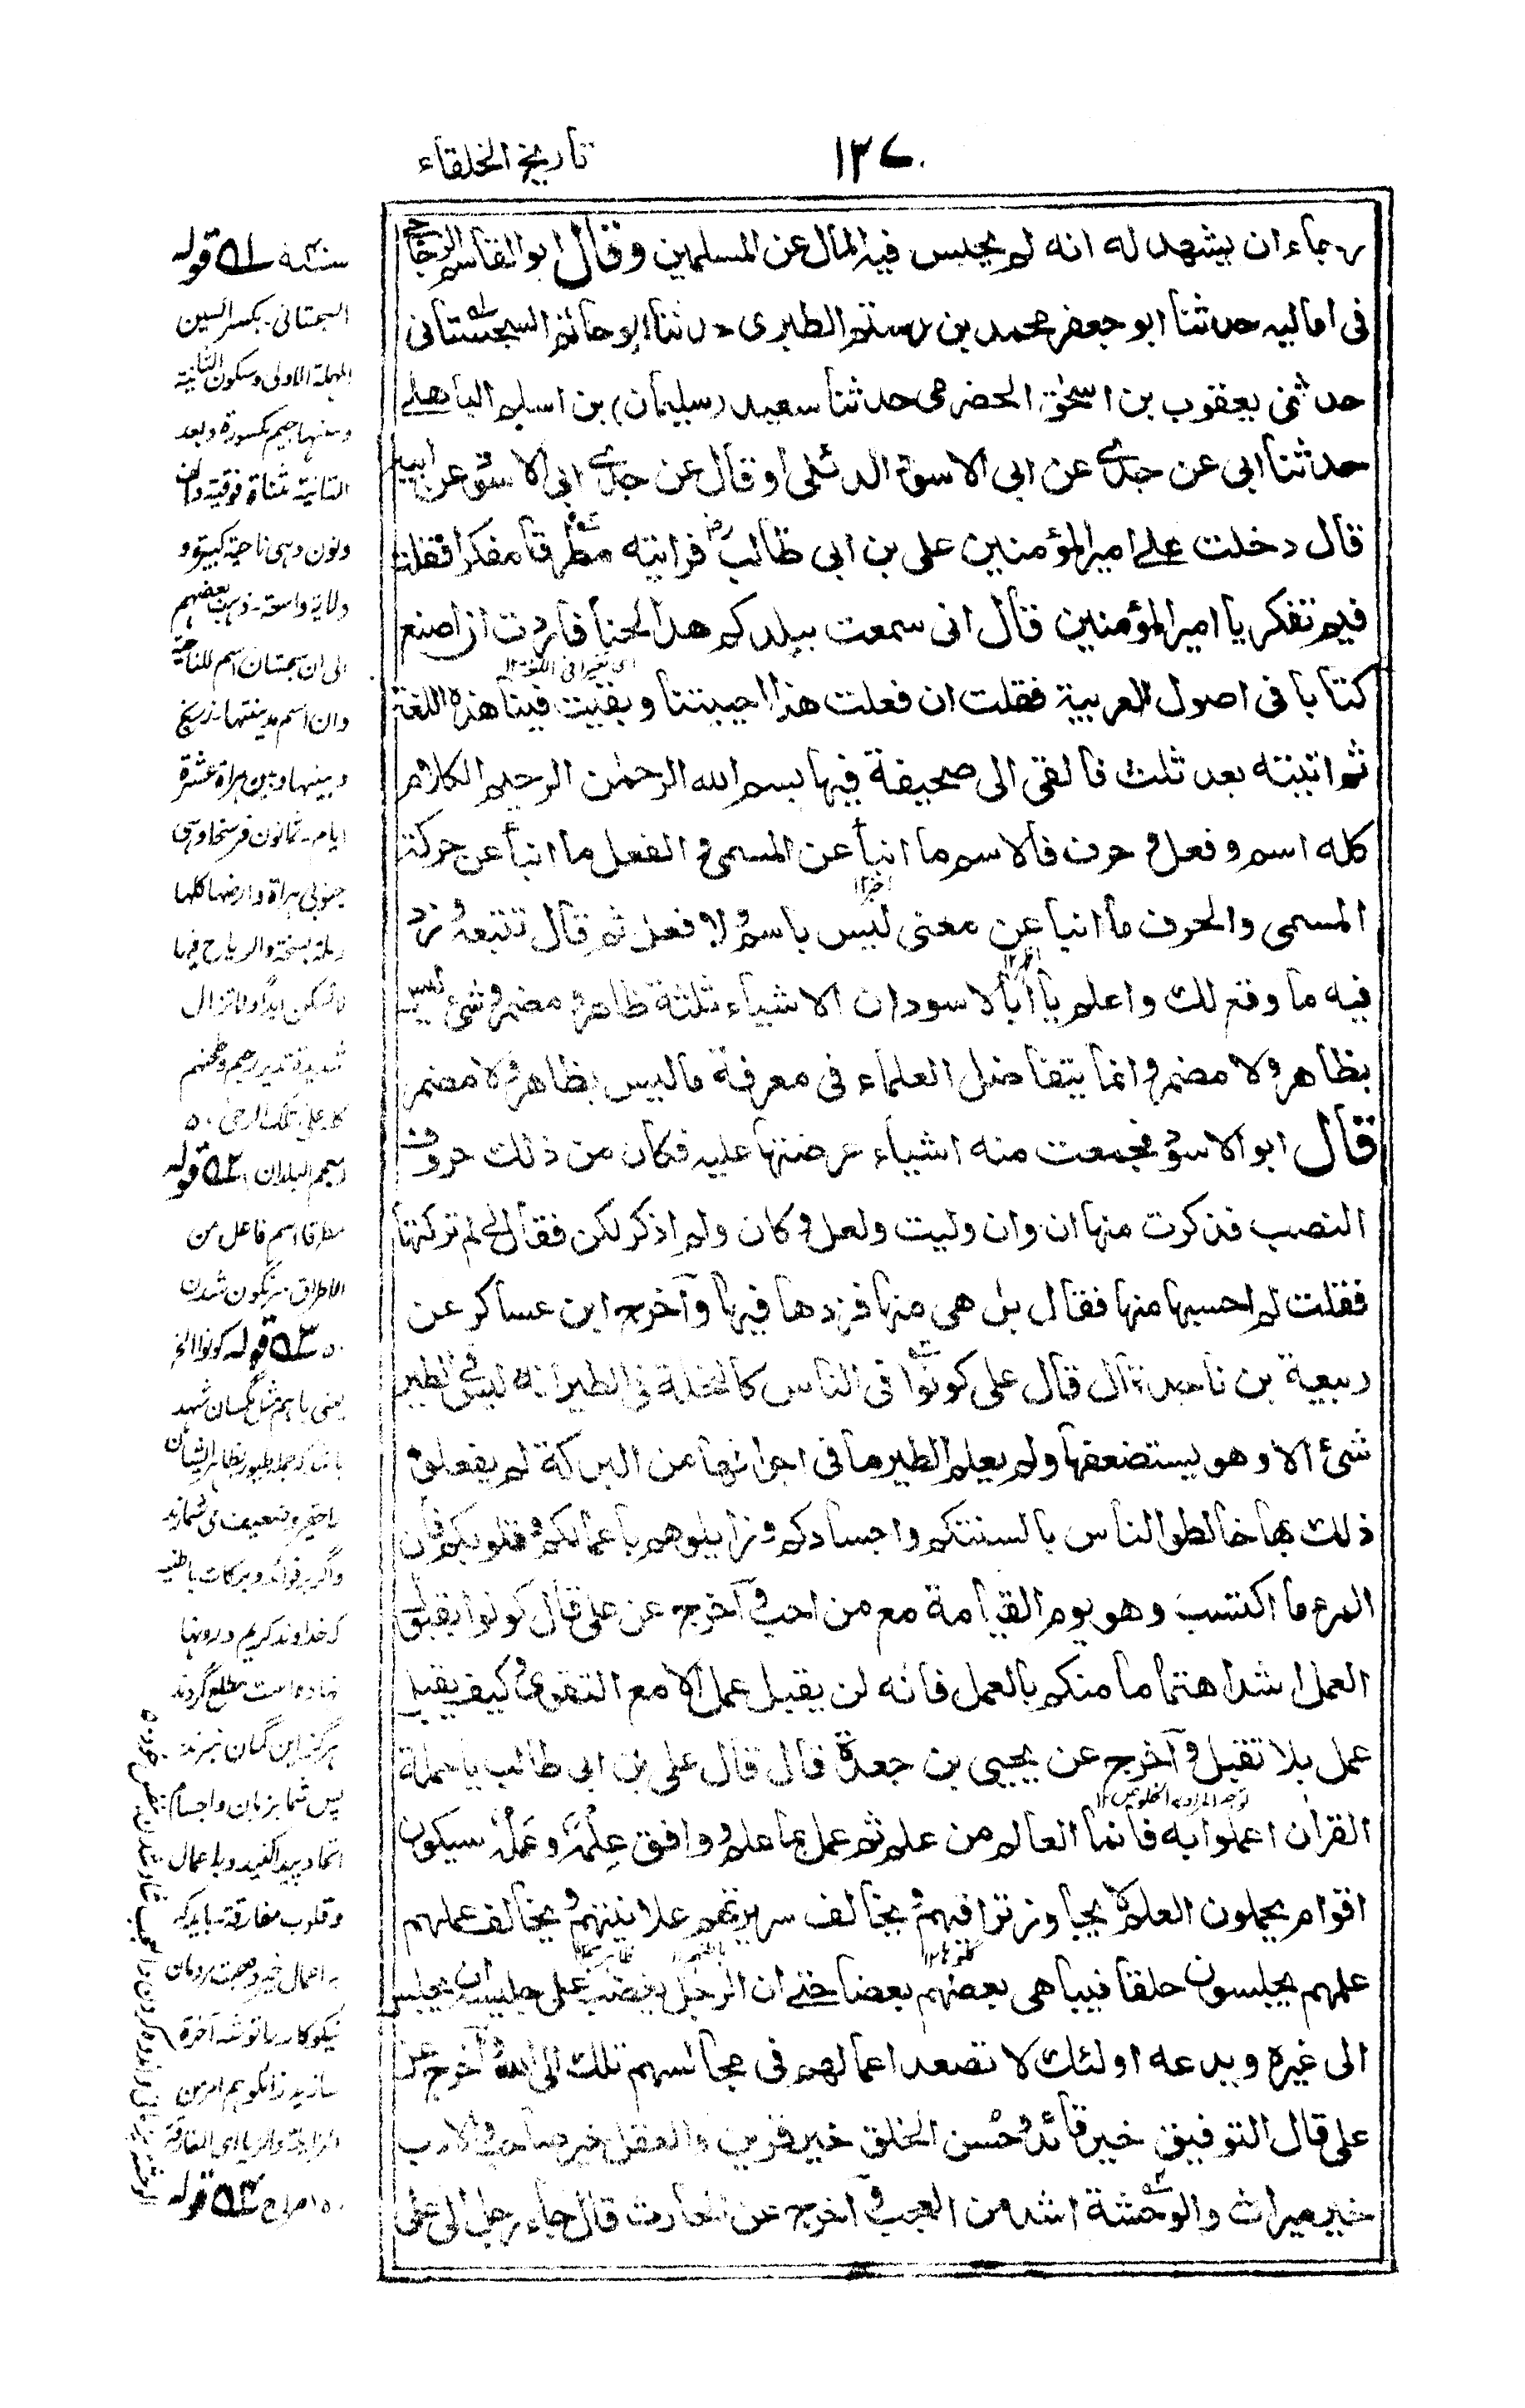 ١٣٧
تاريخ الخلفاء
رجاء ان يشهد له انه لم يحبس فيه المال عن المسلمين وقال ابو القاسم الزجاجي
فى اماليه حدثنا ابو جعفر محمد بن رستم الطبرى حدثنا ابو حاتم السجستانى
حدثنى يعقوب بن اسحٰق الحضرمى حدثنا سعيد (سليمان) بن اسلم الباهلے
حدثنا ابى عن جدے عن ابى الاسود الدئلى او قال عن جدے ابى الاسود عن ابيه
قال دخلت علے امير المؤمنين على بن ابى طالب رض فرايته مطرقا مفكرا فقلت
فيم تفكر يا امير المؤمنين قال انى سمعت ببلدكم هذا لحنا فاردت ان اصنع
كتابا فى اصول العربية فقلت ان فعلت هذا احييتنا وبقيت فينا هذه اللغة
ثم اتيته بعد ثلث فالقى الى صحيفة فيها بسم الله الرحمٰن الرحيم الكلام
كله اسم وفعل و حرف فالاسم ما انبأ عن المسمى و الفعل ما انبأ عن حركة
المسمى والحرف ما انبأ عن معنى ليس باسم و لا فعل ثم قال تتبعه و زد
فيه ما وقع لك واعلم يا ابا الاسود ان الاشياء ثلثة ظاهر و مضمر و شئ ليس
بظاهر و لا مضمر و انما يتفاضل العلماء فى معرفة ما ليس بظاهر و لا مضمر
قال ابو الاسود فجمعت منه اشياء عرضتها عليه فكان من ذلك حروف
النصب فذكرت منها ان وان وليت ولعل و كان ولم اذكر لكن فقال لى لم تركتها
فقلت لم احسبها منها فقال بل هى منها فزدها فيها وآخرج ابن عساكر عن
ربيعة بن ناجد قال قال على كونوا فى الناس كالنحلة فى الطير انه ليس فى الطير
شئ الا وهو يستضعفها ولو يعلم الطير ما فى اجوافها من البركة لم يفعلوا
ذلك بها خالطوا الناس بالسنتكم واجسادكم و زايلوهم باعمالكم و قلوبكم فان
للمرء ما اكتسب وهو يوم القيامة مع من احب و آخرج عن على قال كونوا بقبول
العمل اشد اهتماما منكم بالعمل فانه لن يقبل عمل الا مع التقوى و كيف يقبل
عمل بلا تقبل و آخرج عن يحيى بن جعدة قال قال على بن ابى طالب يا حملة
القرآن اعملوا به فانما العالم من علم ثم عمل بما علم و وافق علمه و عمله و سيكون
اقوام يحملون العلم لا يجاوز تراقيهم و يخالف سريرتهم علانيتهم و يخالف عملهم
علمهم يجلسون حلقا فيباهى بعضهم بعضا حتے ان الرجل يغضب على جليسه ان يجلس
الى غيره ويدعه اولئك لا تصعد اعمالهم فى مجالسهم تلك الى الله و آخرج عن
على قال التوفيق خير قائد و حسن الخلق خير قرين والعقل خير صاحب و الادب
خير ميراث والوحشة اشد من العجب و آخرج عن الحارث قال جاء رجل الى على
سنه ۱ قوله
السجستانى بكسر السين
المهملة الاولى وسكون الثانية
وبينهما جيم مكسورة وبعد
الثانية مثناة فوقية والف
ونون وهى ناحية كبيرة و
ولاية واسعة ذهب بعضهم
الى ان سجستان اسم للناحية
وان اسم مدينتها زرنج
وبينها وبين هراة عشرة
ايام ثمانون فرسخا وهى
جنوبى هراة وارضها كلها
رملة سبخة والرياح فيها
لا تسكن ابدا ولا تزال
شديدة تدير رحيهم وطحنهم
كله على تلك الرحى
معجم البلدان ۲ قوله
مطرقا اسم فاعل من
الاطراق سرنگون شدن
۳ قوله كونوا الخ
يعنى باهم مثل مگسان شهد
را حقير وضعيف مى شمارند
واگر بر فوائد وبركات باطنيه
كه خداوند كريم در ونها
نهاده است مطلع گردند
هرگز اين گمان نبرند
پس شما بزبان واجسام
اتحاد پيدا كنيد وباعمال
وقلوب مفارقة بايد كه
به اعمال خير وصحبت مردمان
نيكوكار را توشه آخرة
۴ قوله